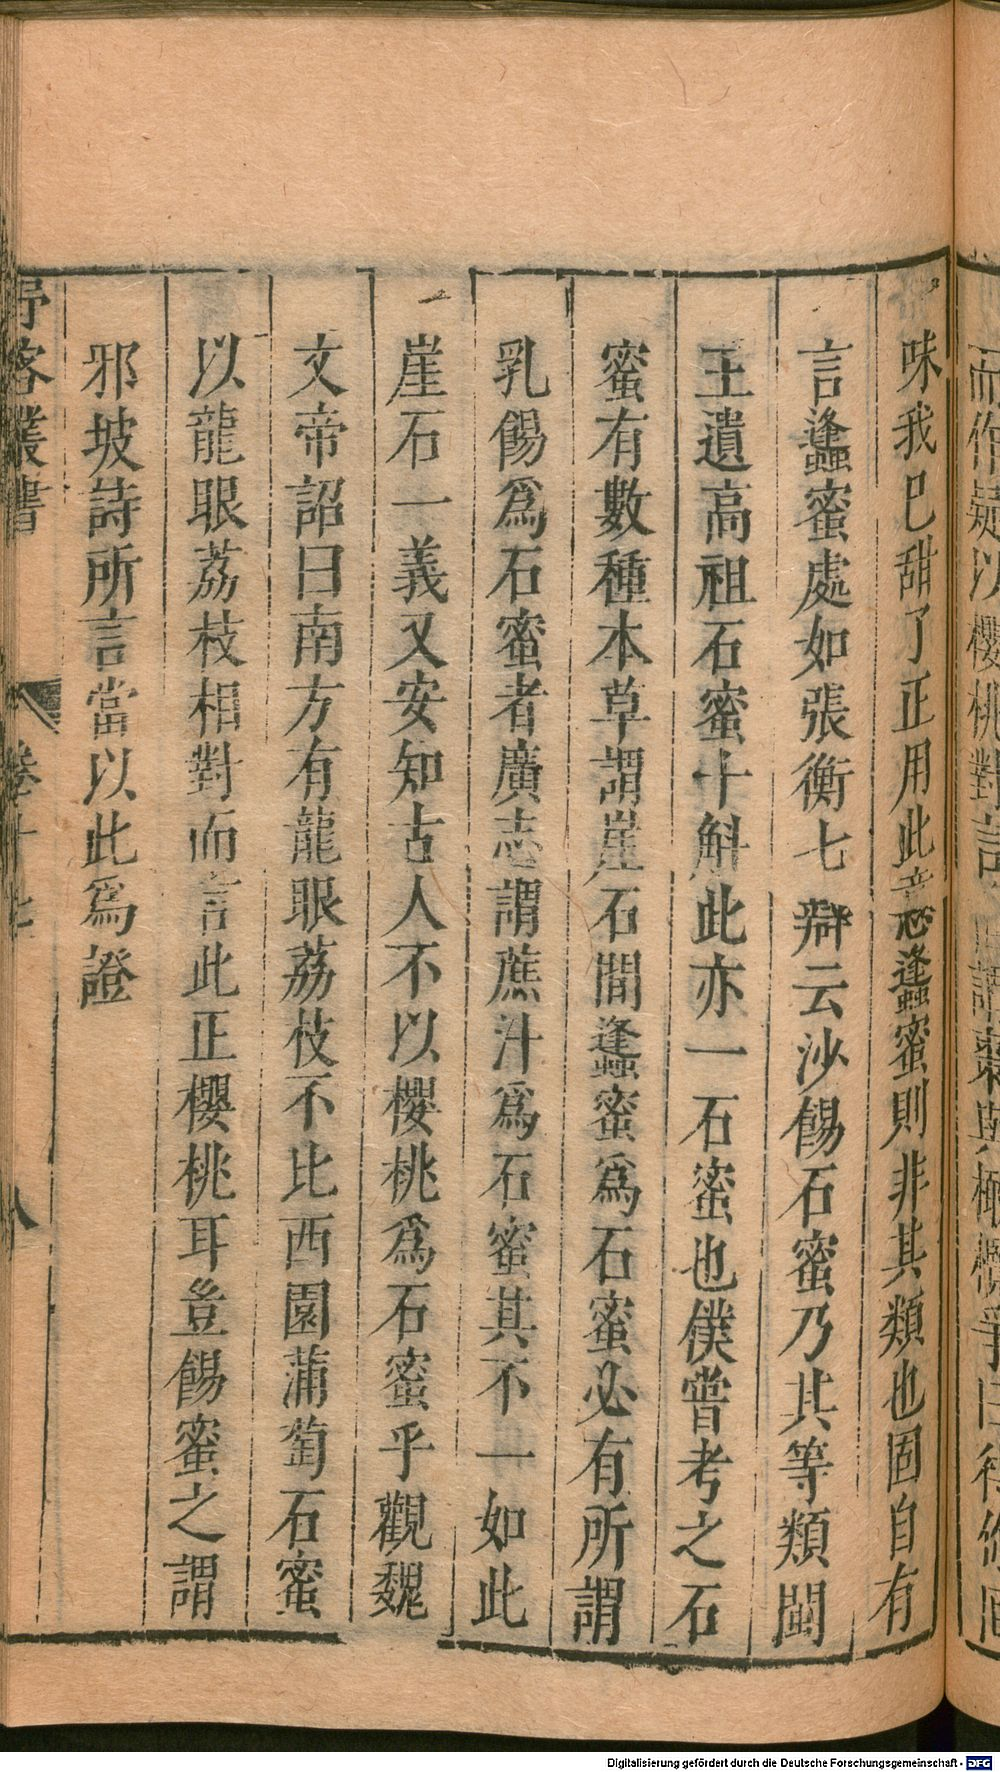 味我已甜了正用此意恐蠭蜜則非其類也固自有
言蠭蜜處如張衡七辯云沙餳石蜜乃其等類閩
王遺高祖石蜜十斛此亦一石蜜也僕嘗考之石
蜜有數種本草謂崖石間蠭蜜爲石蜜必有所謂
乳餳爲石蜜者廣志謂蔗汁爲石蜜其不一如此
崖石一義又安知古人不以櫻桃爲石蜜乎觀魏
文帝詔曰南方有龍眼荔枝不比西園蒲萄石蜜
以龍眼荔枝相對而言此正櫻桃耳豈餳蜜之謂
邪坡詩所言當以此爲證
客叢書 卷十 八
Digitalisierung gefördert durch die Deutsche Forschungsgemeinschaft - DFG